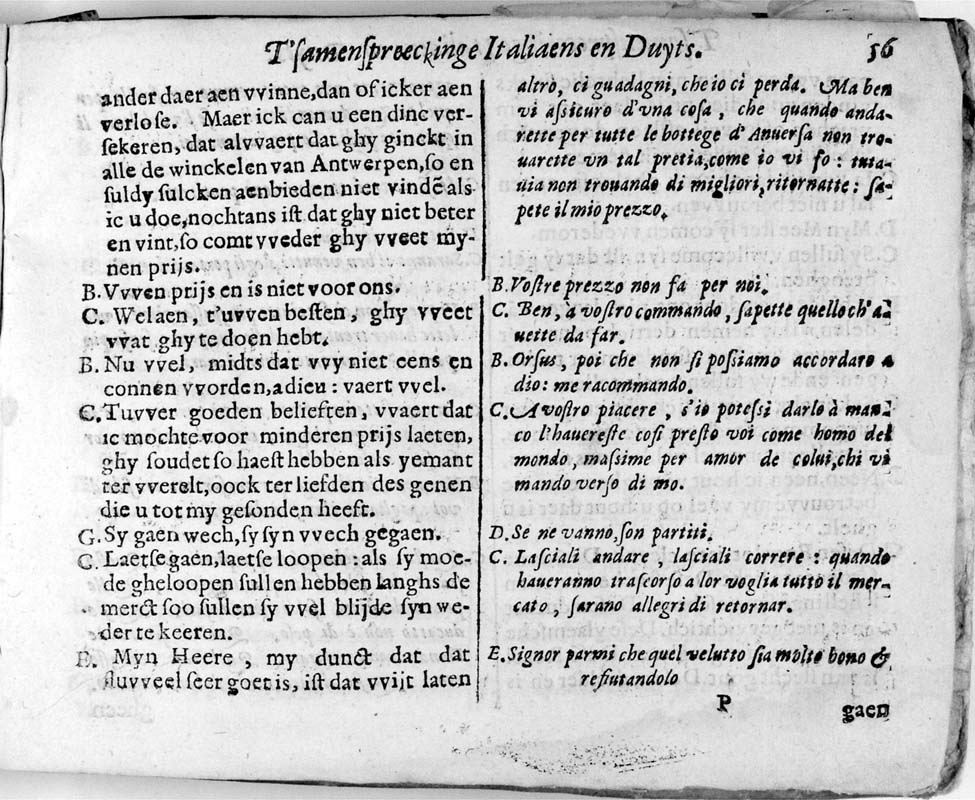 T'ſamenſpreeckinge Italiaens en Duyts.
56
ander daer aen vvinne, dan of icker aen
verloſe. Maer ick can u een dinc ver-
ſekeren, dat alvvaert dat ghy ginckt in
alle de winckelen van Antwerpen, ſo en
ſuldy ſulcken aenbieden niet vindē als
ic u doe, nochtans iſt dat ghy niet beter
en vint, ſo comt vveder ghy vveet my-
nen prijs.
B. Vvven prijs en is niet voor ons.
C. Welaen, t'uvven beſten, ghy vveet
vvat ghy te doen hebt.
B. Nu vvel, midts dat vvy niet eens en
connen vvorden, adieu: vaert vvel.
C. Tuvver goeden belieften, vvaert dat
ic mochte voor minderen prijs laeten,
ghy ſoudet ſo haeſt hebben als yemant
ter vverelt, oock ter liefden des genen
die u tot my geſonden heeft.
G. Sy gaen wech, ſy ſyn vvech gegaen.
C. Laetſe gaen, laetſe loopen: als ſy moe-
de gheloopen ſullen hebben langhs de
merct ſoo ſullen ſy vvel blijde ſyn we-
der te keeren.
E. Myn Heere, my dunct dat dat
fluvveel ſeer goet is, iſt dat vvijt laten
altro, ci guadagni, che io ci perda. Ma ben
vi aſſicuro d'vna coſa, che quando anda-
rette per tutte le bottege d'Anuerſa non tro-
uarette vn tal pretia, come io vi fo: tuta-
uia non trouando di migliori, ritornatte: ſa-
pete il mio prezzo.
B. Voſtre prezzo non fa per noi.
C. Ben, a voſtro commando, ſapette quello ch'a-
uette da far.
B. Orſus, poi che non ſi poſſiamo accordare a
dio: me racommando.
C. A voſtro piacere, s'io poteſſi darlo à man-
co l'hauereſte coſi preſto voi come homo del
mondo, maſſime per amor de colui, chi vi
mando verſo di mo.
D. Se ne vanno, ſon partiti.
C. Laſciali andare, laſciali correre: quando
haueranno traſcorſo a lor voglia tutto il mer-
cato, ſarano allegri di retornar.
E. Signor parmi che quel velutto ſia molto bono &
refiutandolo
P
gaen